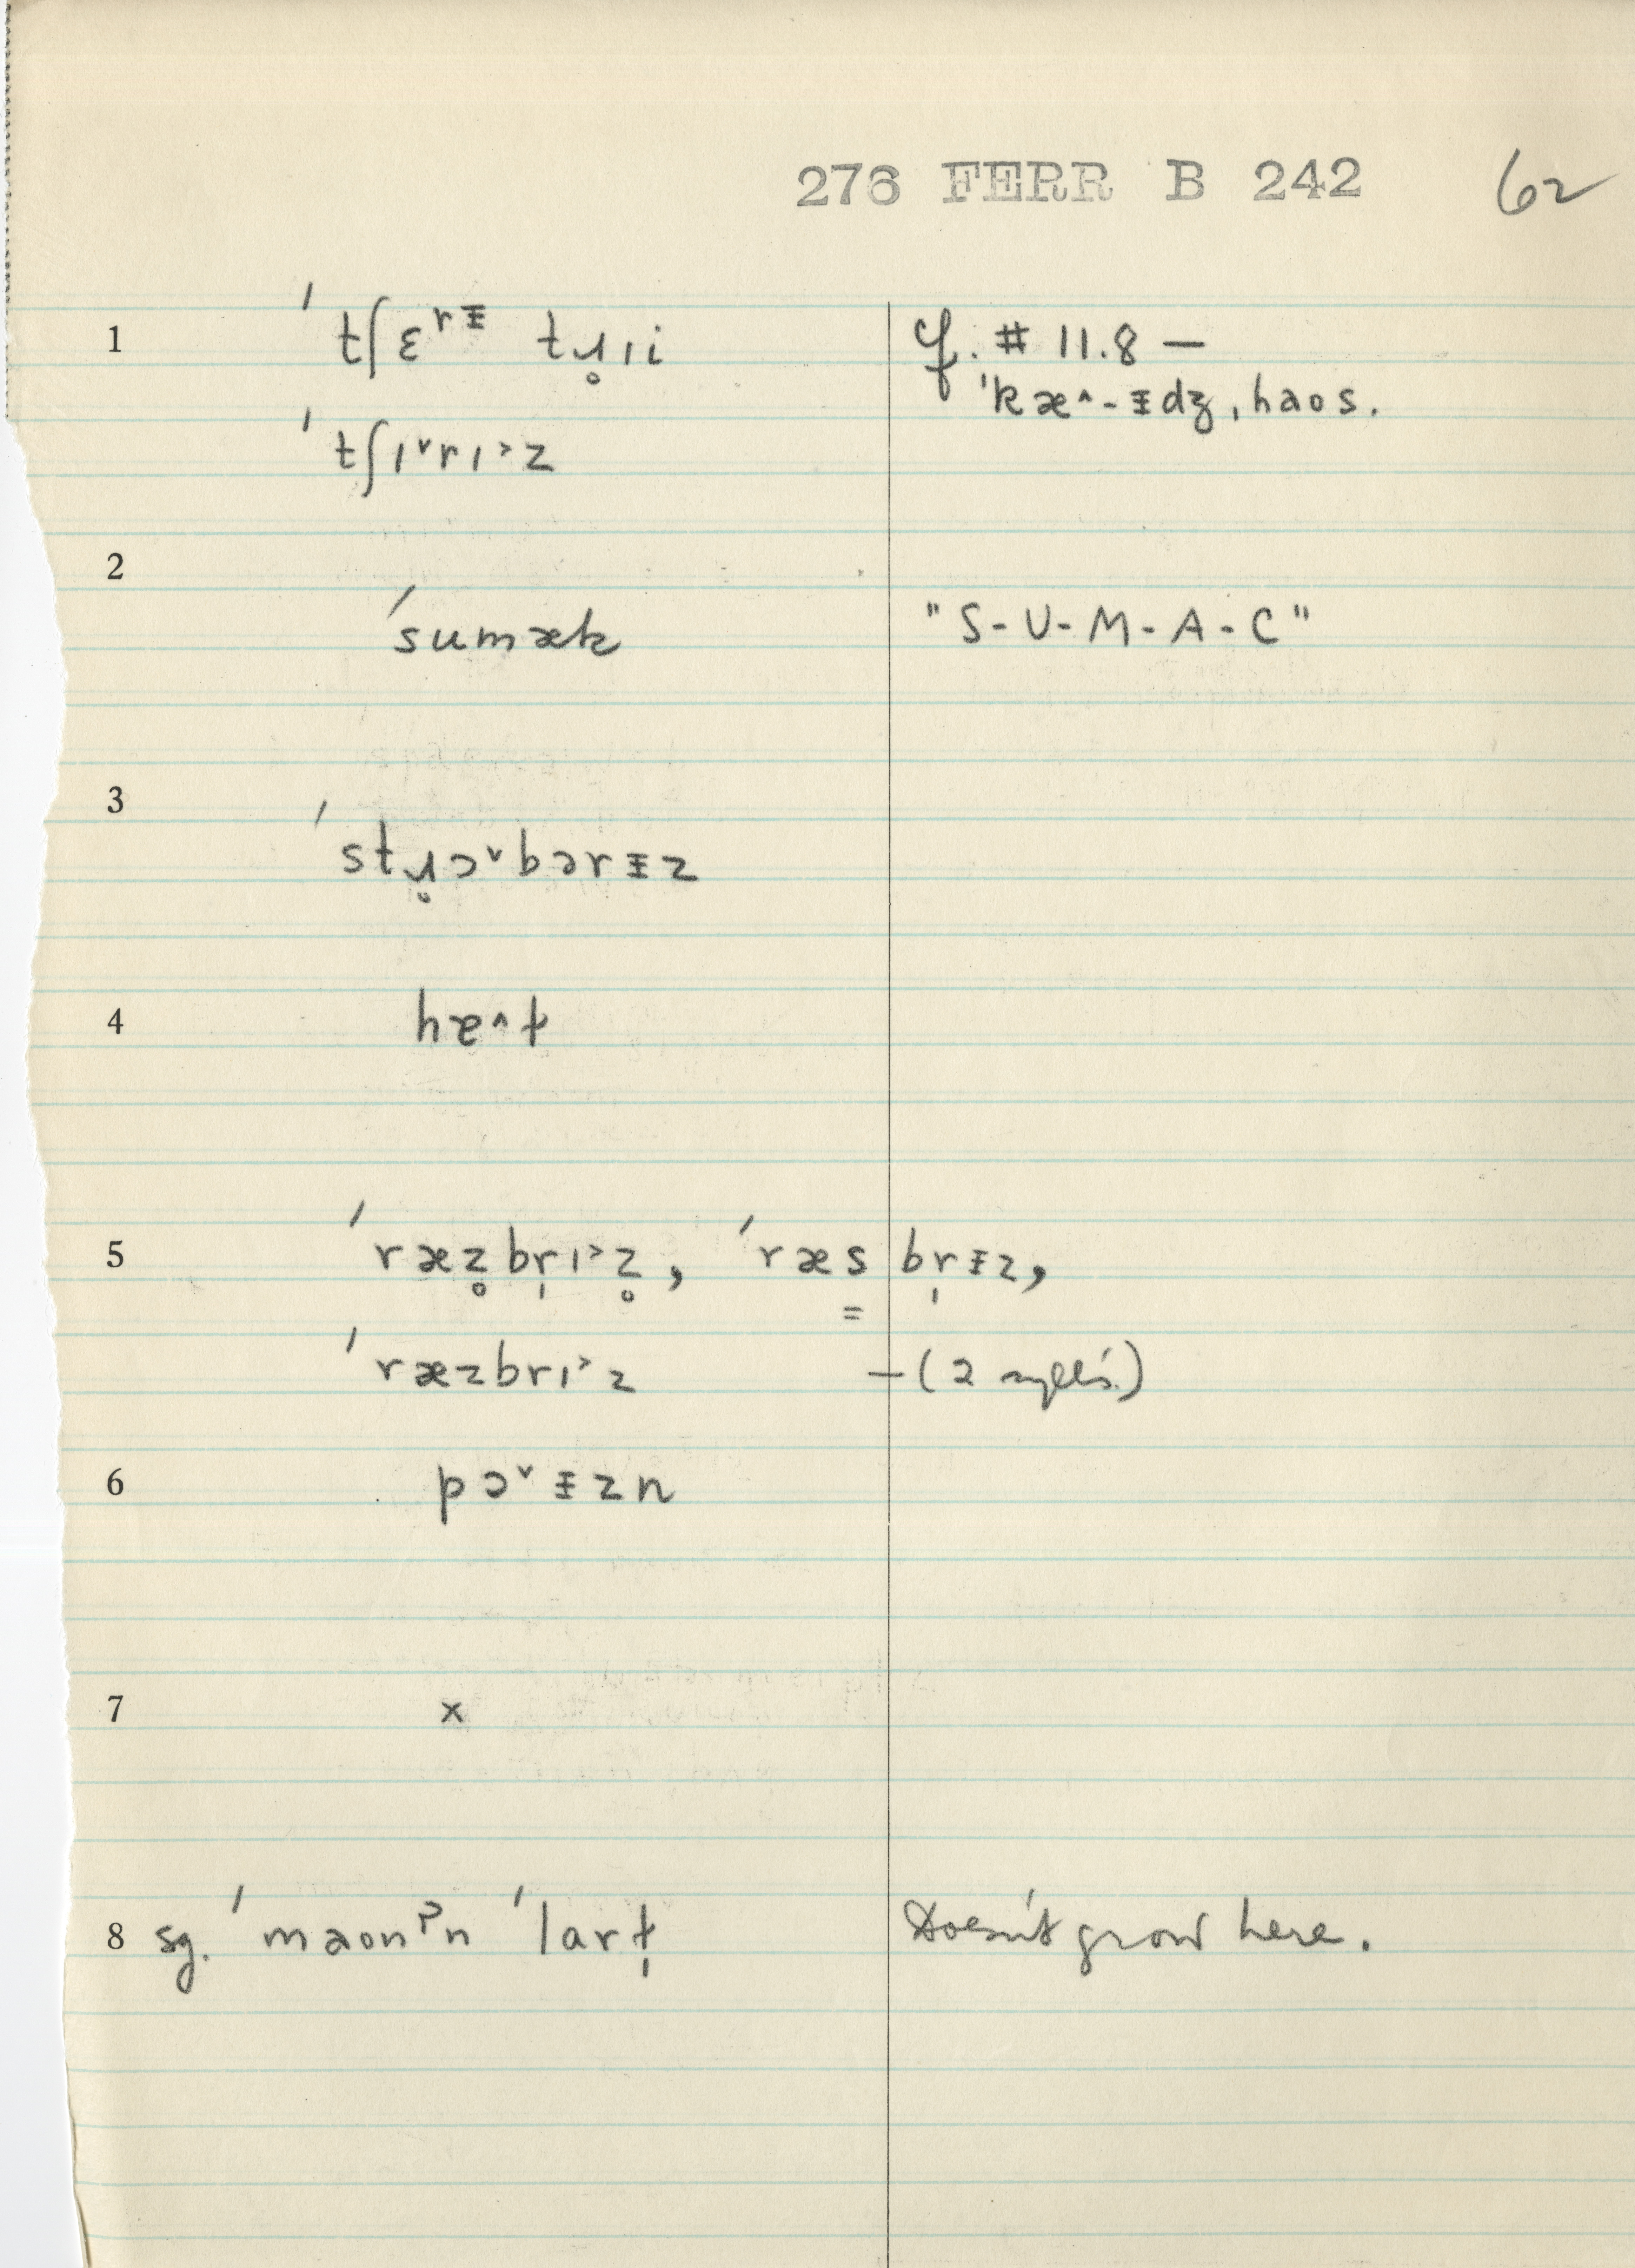 276 FERR B 242 62
1 ˈtʃɛʳᵻ tɹ̥ɪi cf. # 11.8 —
ˈkæ^-ᵻdʒ, haos.
ˈtʃɪ˅rɪ˃z
2
ˈsumæk "S-U-M-A-C"
3
ˈstɹ̥ɔ˅bərᵻz
4 hɐ^ɫ
5 ˈræz̥br̩ɪ˃z̥, ˈræs̳br̩ᵻz,
ˈræzbrɪ˃z —(2 sylls.)
6 pɔ˅ᵻzn
7 x
8 sg. ˈmaonˀn ˈlarɫ̩ Doesn't grow here.